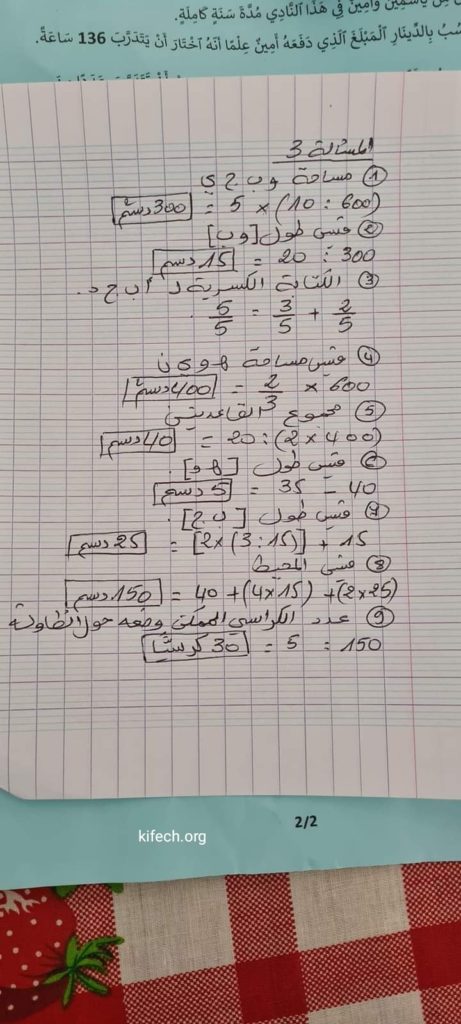 فِي هَذَا النَّادِي مُدَّةَ سَنَةٍ كَامِلَةٍ.
بِالدِّينَارِ الْمَبْلَغَ الَّذِي دَفَعَهُ أَمِينٌ عِلْمًا أَنَّهُ اخْتَارَ أَنْ يَتَدَرَّبَ 136 سَاعَةً.
المسألة 3
① مساحة و ب ج ي
(600 : 10) × 5 = 300 دسم²
② قيس طول [و ب]
300 : 20 = 15 دسم
③ الكتابة الكسرية لـ أ ب ج د.
2/5 + 3/5 = 5/5.
④ قيس مساحة هـ و ي ن
600 × 2/3 = 400 دسم²
⑤ مجموع القاعدتين
(400 × 2) : 20 = 40 دسم
⑥ قيس طول [هـ و].
40 - 35 = 5 دسم
⑦ قيس طول [ب ج].
15 + [(15 : 3) × 2] = 25 دسم
⑧ قيس المحيط
(25 × 2) + (15 × 4) + 40 = 150 دسم
⑨ عدد الكراسي الممكن وضعه حول الطاولة
150 : 5 = 30 كرسيّا
2/2
kifech.org